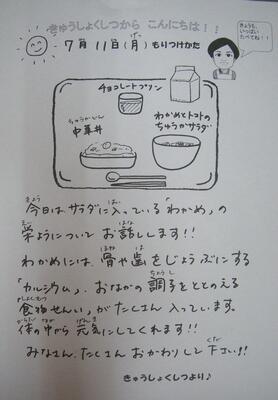 きゅうしょくしつから こんにちは！！
7月 11日(月) もりつけかた
きょうも、
いっぱい
たべてね！！
チョコレートプリン
わかめとトマトの
ちゅうかサラダ
中華丼
今日は サラダに 入っている「わかめ」の
栄ようについて お話します!!
わかめには、骨や歯を じょうぶにする
「カルシウム」、おなかの 調子を ととのえる
「食物せんい」が たくさん 入っています。
体の中から 元気にしてくれます!!
みなさん、たくさん おかわりして 下さい!!
きゅうしょくしつより♪